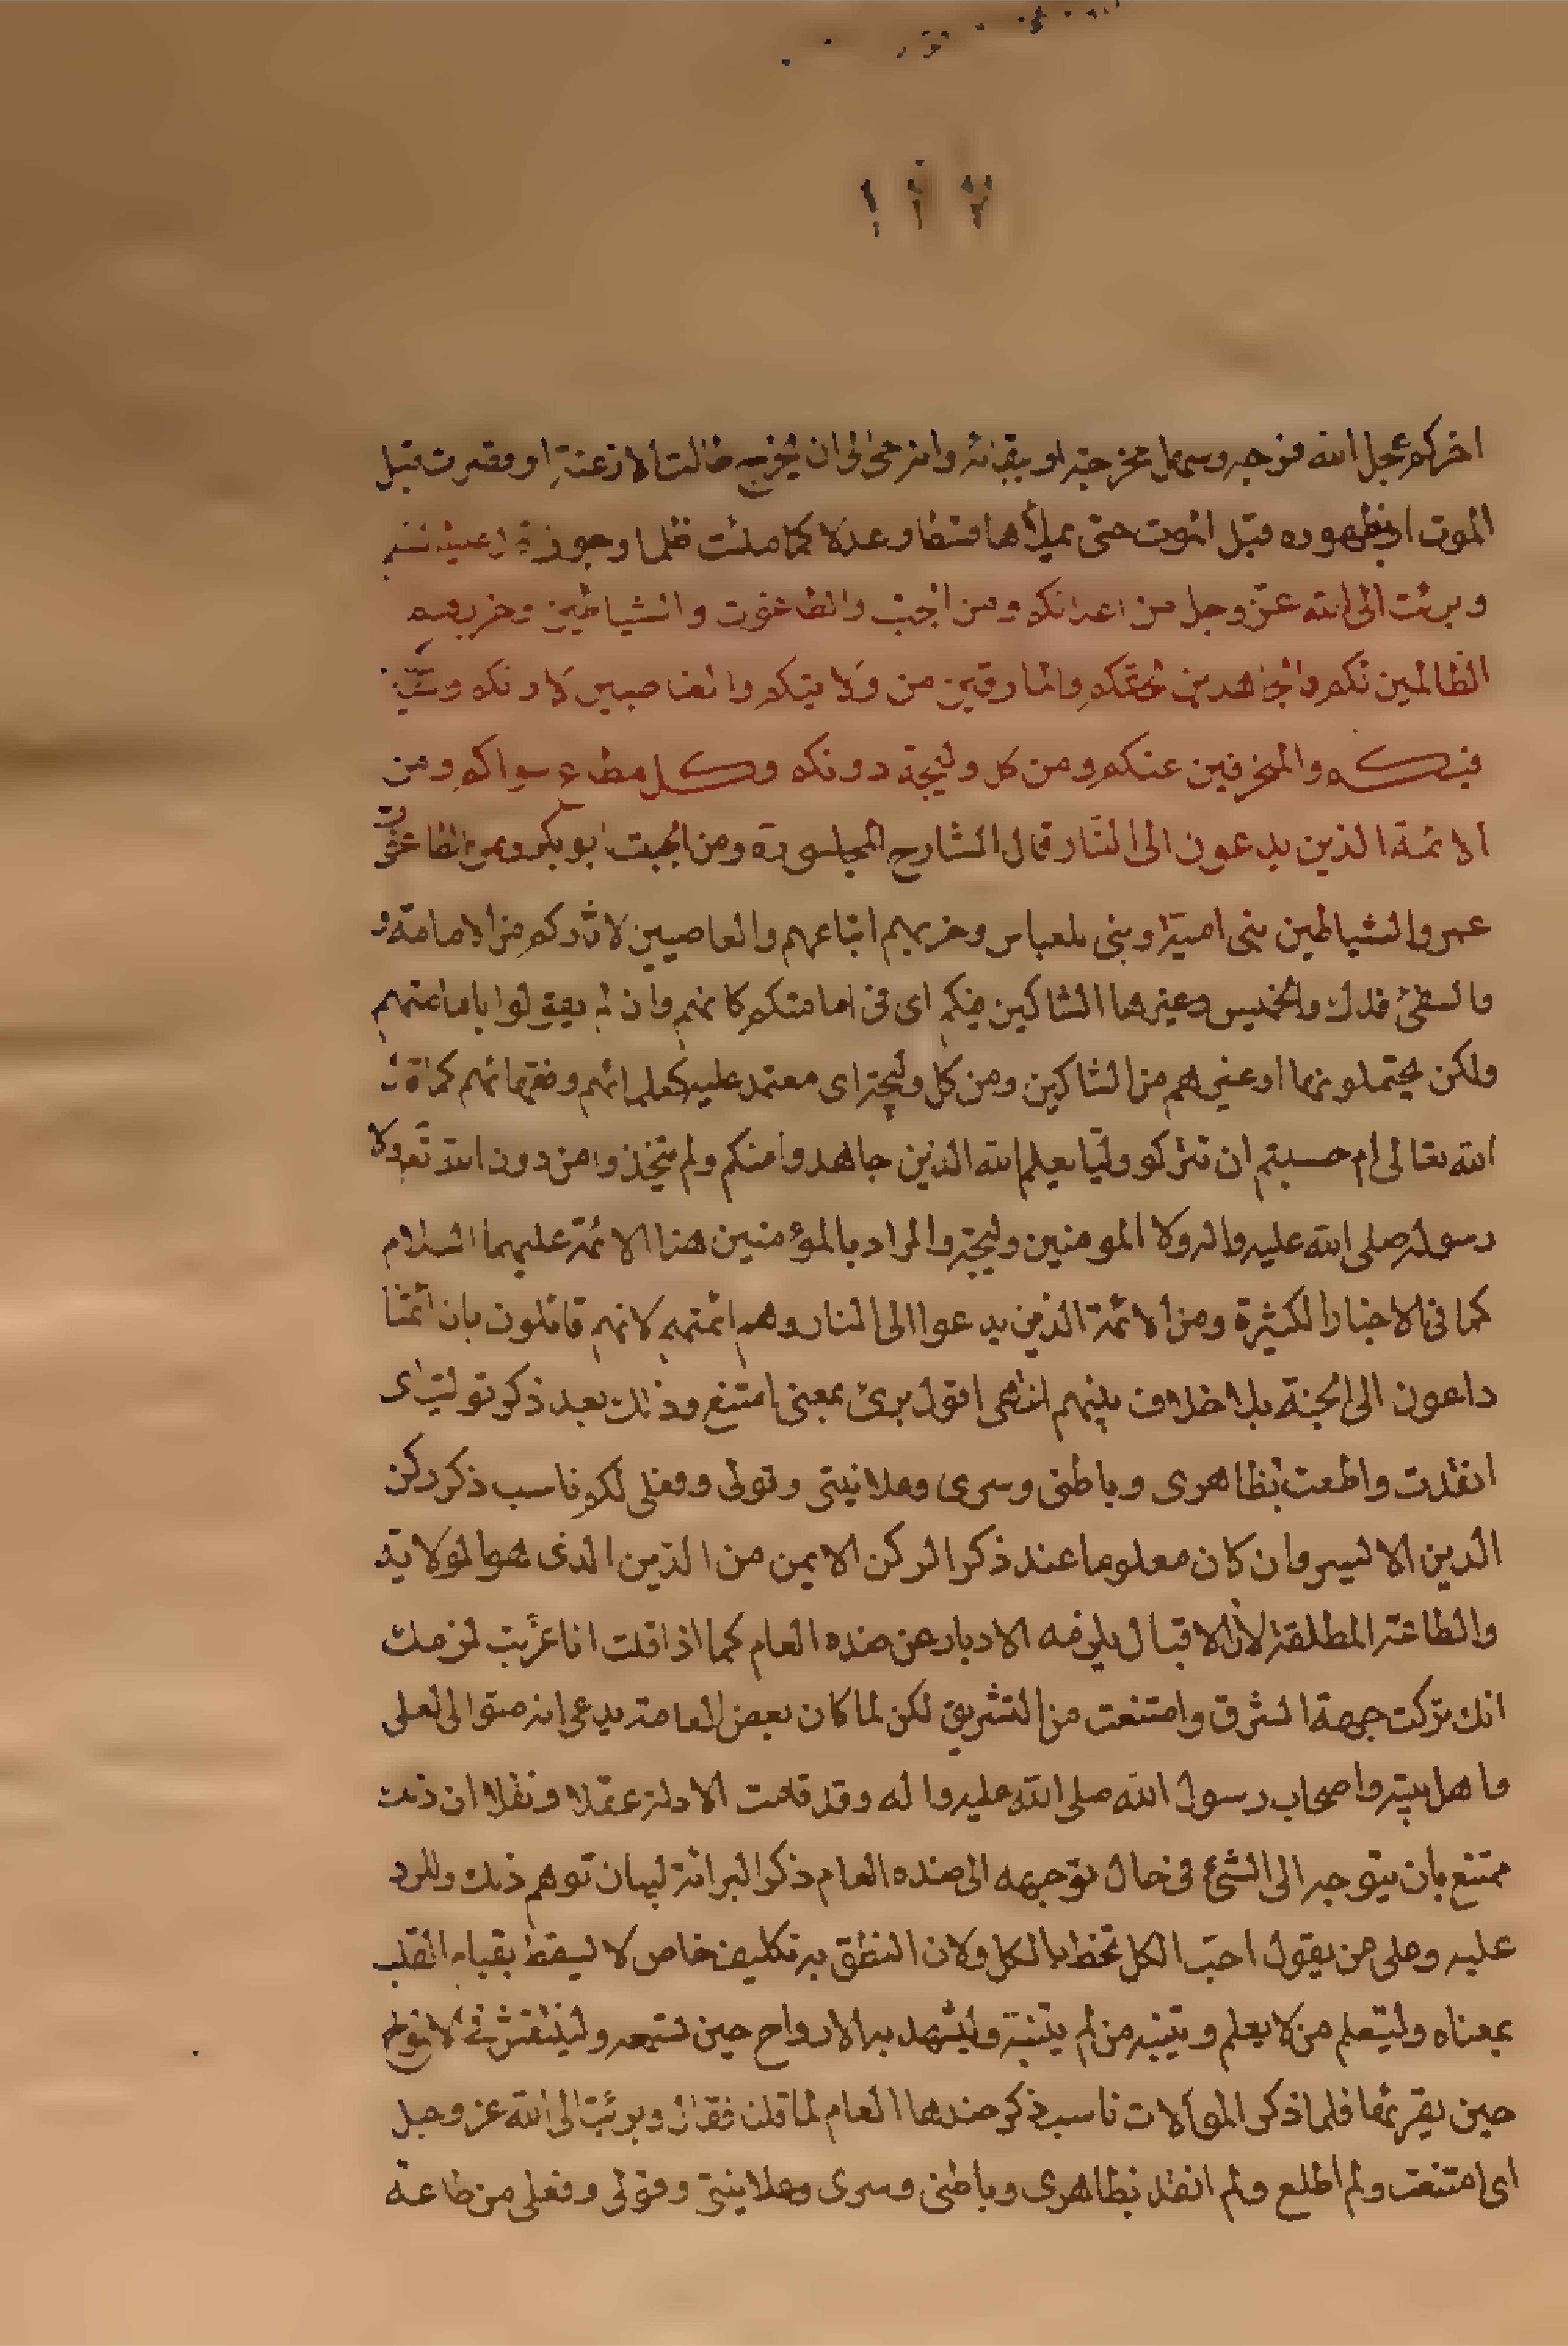 اخركم عجل الله فرجه وسهل مخرجه او ببقائه وانه حى الى ان يخرج طالت الازمنة او قصرت قبل
الموت او بظهوره قبل الموت حتى يملأها قسطا وعدلا كما ملئت ظلما وجورا
وبرئت الى الله عز وجل من اعدائكم ومن الجبت والطاغوت والشياطين وحزبهم
الظالمين لكم والجاحدين لحقكم والمارقين من ولايتكم والغاصبين لارثكم
فيكم والمنحرفين عنكم ومن كل وليجة دونكم وكل مطاع سواكم ومن
الائمة الذين يدعون الى النار قال الشارح المجلسى ره ومن الجبت ابو بكر ومن الطاغوت
عمر والشياطين بنى امية وبنى العباس وحزبهم اتباعهم والغاصبين لارثكم من الامامة و
والفىء فدك والخمس وغيرها الشاكين فيكم اى فى امامتكم كانهم وان لم يقولوا بامامتهم
ولكن يحتملونها او غيرهم من الشاكين ومن كل وليجة اى معتمد عليه كعلمائهم وفقهائهم
الله تعالى ام حسبتم ان تتركوا ولما يعلم الله الذين جاهدوا منكم ولم يتخذوا من دون الله ولا
رسوله صلى الله عليه واله ولا المومنين وليجة والمراد بالمؤمنين هنا الائمة عليهما السلام
كما فى الاخبار الكثيرة ومن الائمة الذين يدعوا الى النار وهم ائمتهم لانهم قائلون بان ائمتنا
داعون الى الجنة بلا خلاف بينهم انتهى اقول برئ بمعنى امتنع وذلك بعد ذكر توليت اى
انقدت واطعت بظاهرى وباطنى وسرى وعلانيتى وقولى وفعلى لكم ناسب ذكر ركن
الدين الايسر وان كان معلوما عند ذكر الركن الايمن من الدين الذى هو الولاية
والطاعة المطلقة لأن الاقبال يلزمه الادبار عن ضده العام كما اذا قلت انا غربت لزمك
انك تركت جهة الشرق وامتنعت من التشريق لكن لما كان بعض العامة يدعى انه متوالى لعلى
واهل بيته واصحاب رسول الله صلى الله عليه واله وقد قامت الادلة عقلا ونقلا ان ذلك
ممتنع بان يتوجه الى الشئ فى حال توجهه الى ضده العام ذكر البرائة لبيان توهم ذلك وللرد
عليه وعلى من يقول احب الكل تحظ بالكل ولان النطق به تكليف خاص لا يسقط بقيام القلب
بمعناه وليتعلم من لا يعلم ويتنبه من لم يتنبه وليشهد به الارواح حين تسمعه ولينتقش فى الالواح
حين يقرئها فلما ذكر الموالات ناسب ذكر ضدها العام لما قلنا فقال وبرئت الى الله عز وجل
اى امتنعت ولم اطلع ولم انقد بظاهرى وباطنى وسرى وعلانيتى وقولى وفعلى من طاعة